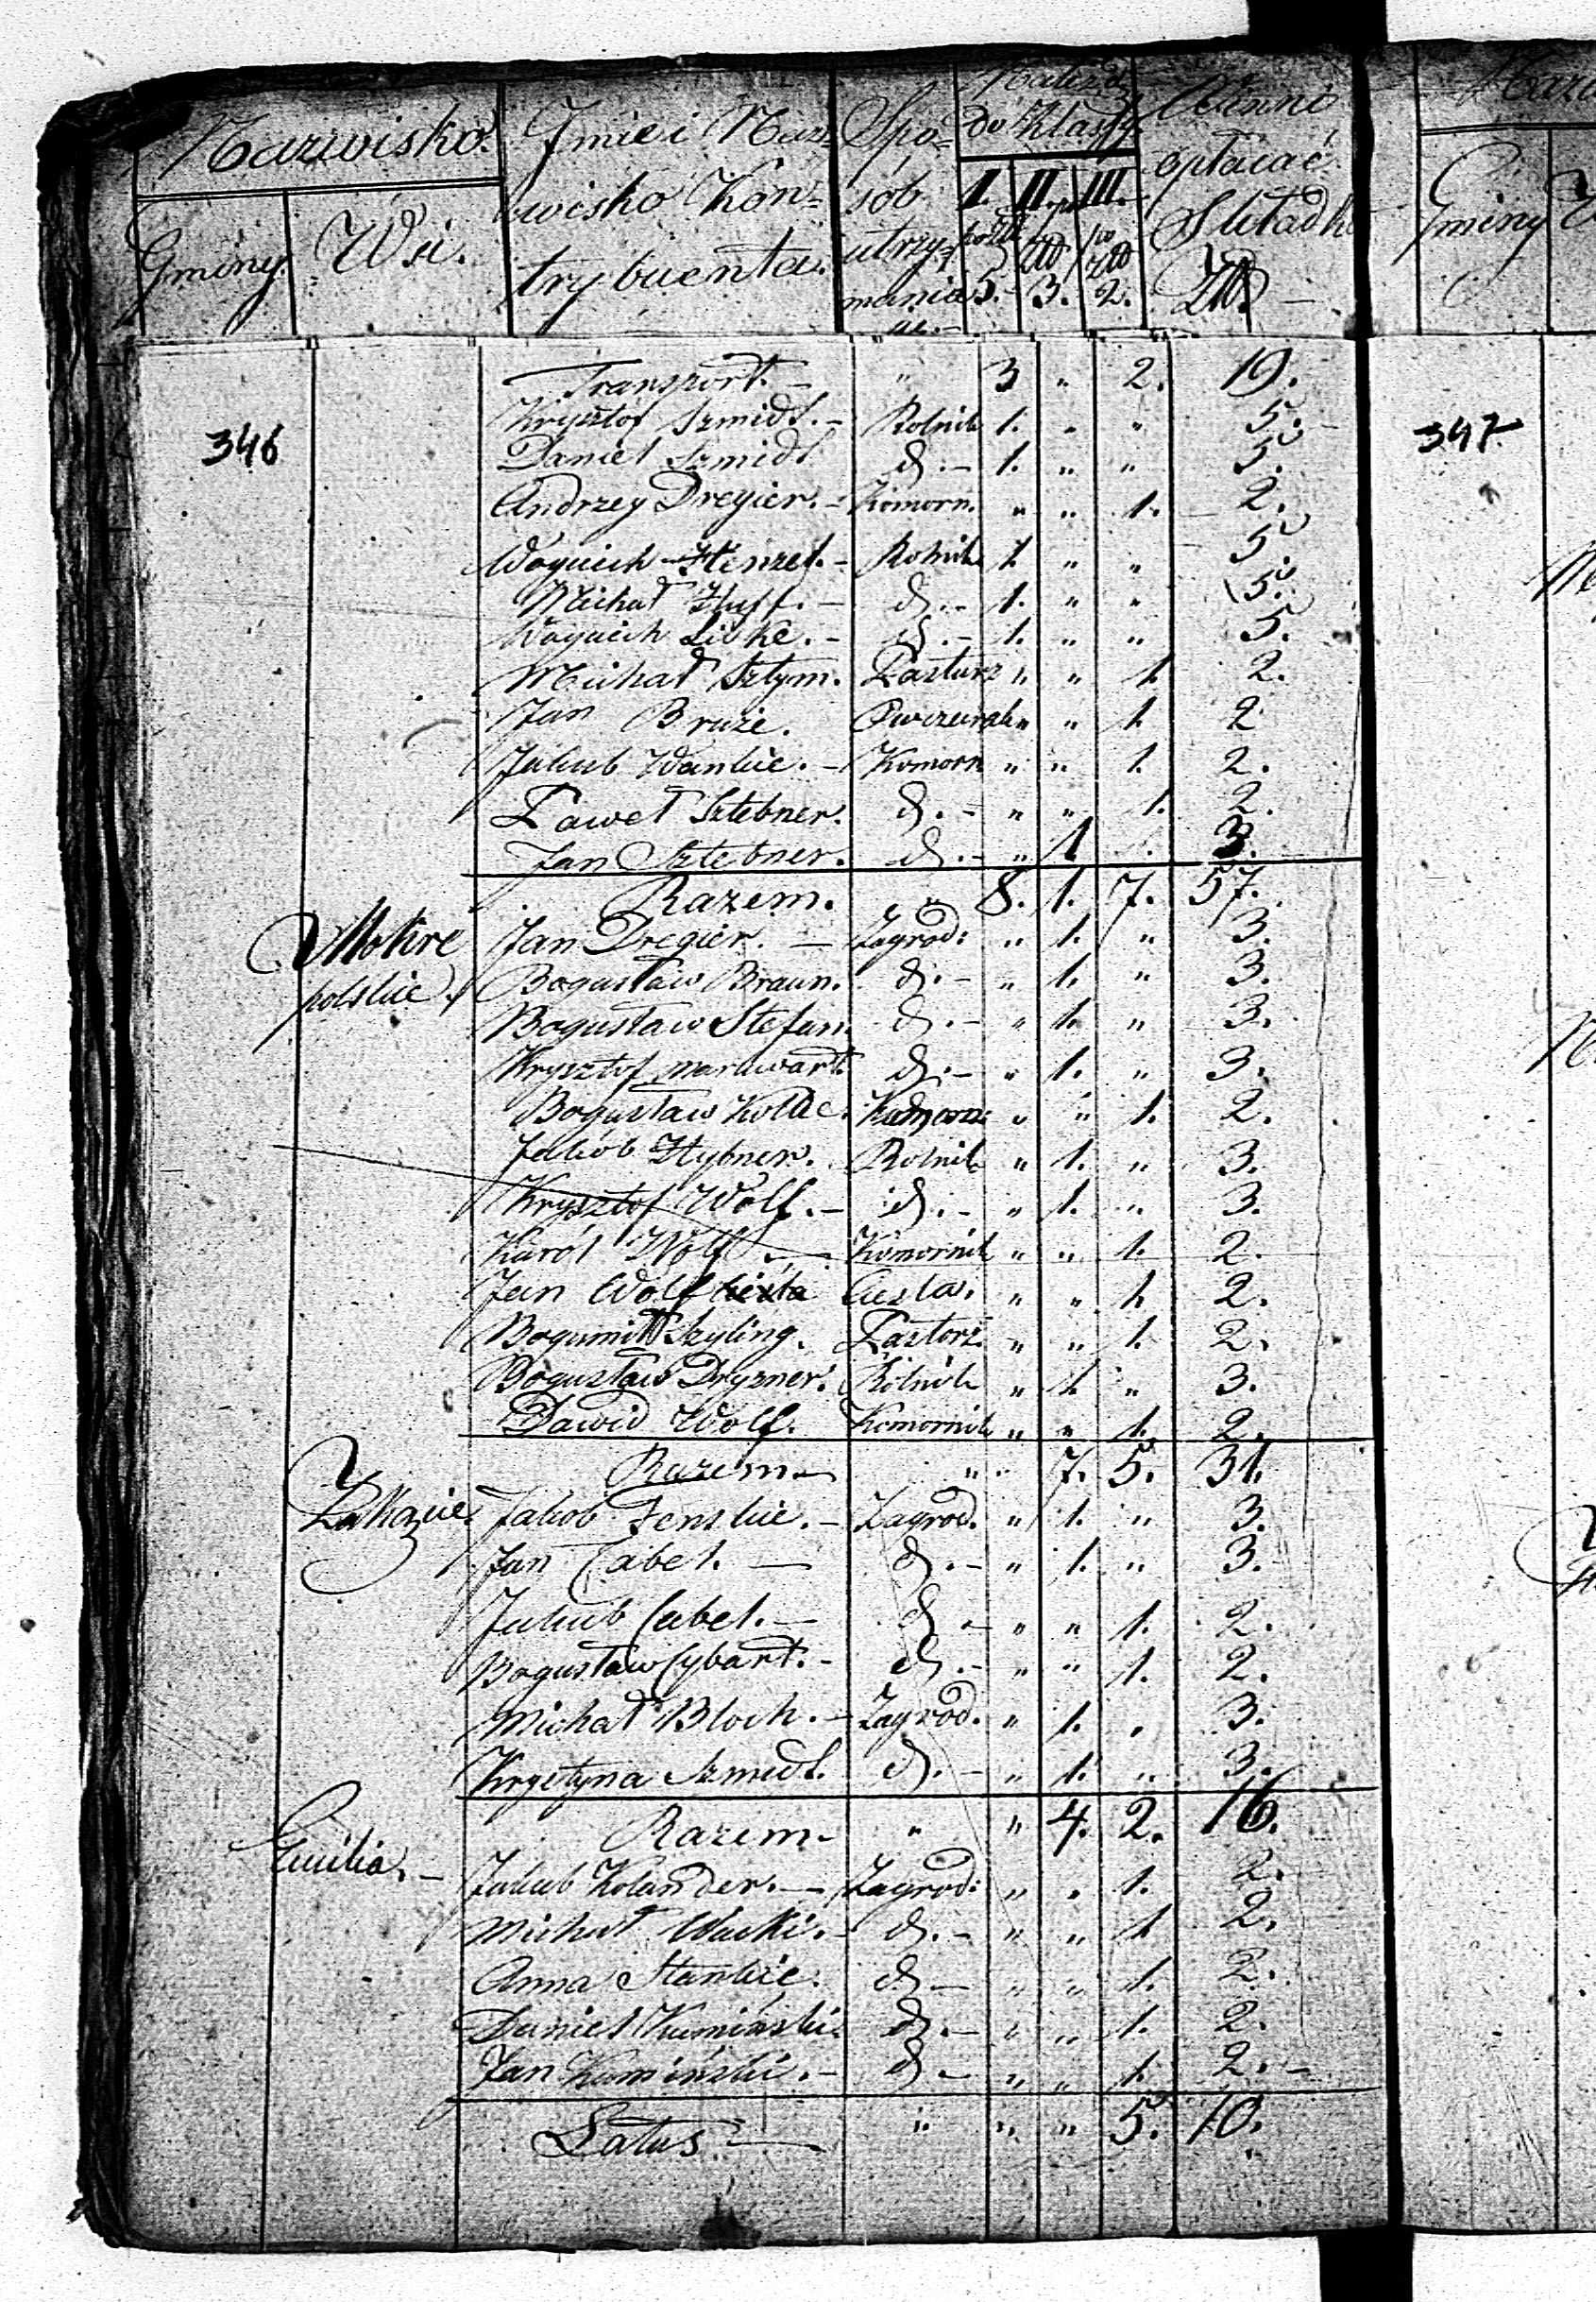 Nazwisko.
Gminy. Wsi.
Imie i Naz=
wisko Kon=
trybuenta.
Spo=
sób
utrzy=
mania
Należą
do Klassy.
I. II. III.
po Złł po Złł po Złł
5. 3. 2.
Winni
opłacać
Składki
Złł.
Gminy
Transport. — " 3 " 2. 19.
346
Krysztof Szmidt. — Rolnik 1. " " 5.
347
Daniel Szmidt d. — 1. " " 5.
Andrzey Dregier. — Komorn. " " 1. 2.
Woyciech Henzel. — Rolnik 1. " " 5.
Michał Huff. — d. — 1. " " 5.
Woyciech Libke. — d. — 1. " " 5.
Michał Sztym. Pastuch " " 1. 2.
Jan Bruże. Owczarek " " 1. 2
Jakub Wankie. — Komorn " " 1. 2.
Paweł Sztebner. d. — " " 1. 2.
Jan Sztebner. d. — " 1. . 3.
Razem. " 8. 1. 7. 57.
Mokre Jan Dregier. — Zagrod: " 1. " 3.
polskie. Bogusław Braun. d. — " 1. " 3.
Bogusław Stefan. d. — " 1. " 3.
Krysztof Markwart. d. — " 1. " 3.
Bogusław Kolbe. Komorn: " " 1. 2.
Jakób Hybner. Rolnik " 1. " 3.
Krysztof Wolf. — d. — " 1. " 3.
Karól Wolf — Komornik " " 1. 2.
Jan Wolf Ciesla. " " 1. 2.
Bogumił Szyling. Pastorz. " " 1. 2.
Bogusław Dryzner. Rólnik " 1. " 3.
Dawid Wolf. Komornik " " 1. 2.
Razem — " " 7. 5. 31.
Jakób Fenskie. — Zagrod. " 1. " 3.
Jan Cabel. — d. — " 1. " 3.
Jakub Cabel. — d. — " " 1. 2.
Bogusław Cybart. — d. — " " 1. 2.
Michał Bloch. — Zagrod. " 1. " 3.
Krystyna Szmidt. d. — " 1. " 3.
Razem — " " 4. 2. 16.
Emilia. — Jakub Kolander. — Zagrod: " " 1. 2.
Michał Wacki. — d. — " " 1. 2.
Anna Stankie. d. — " " 1. 2.
Daniel Kaminski. d. — " " 1. 2.
Jan Kaminski. — d. — " " 1. 2. —
Latus — " " " 5. 10.